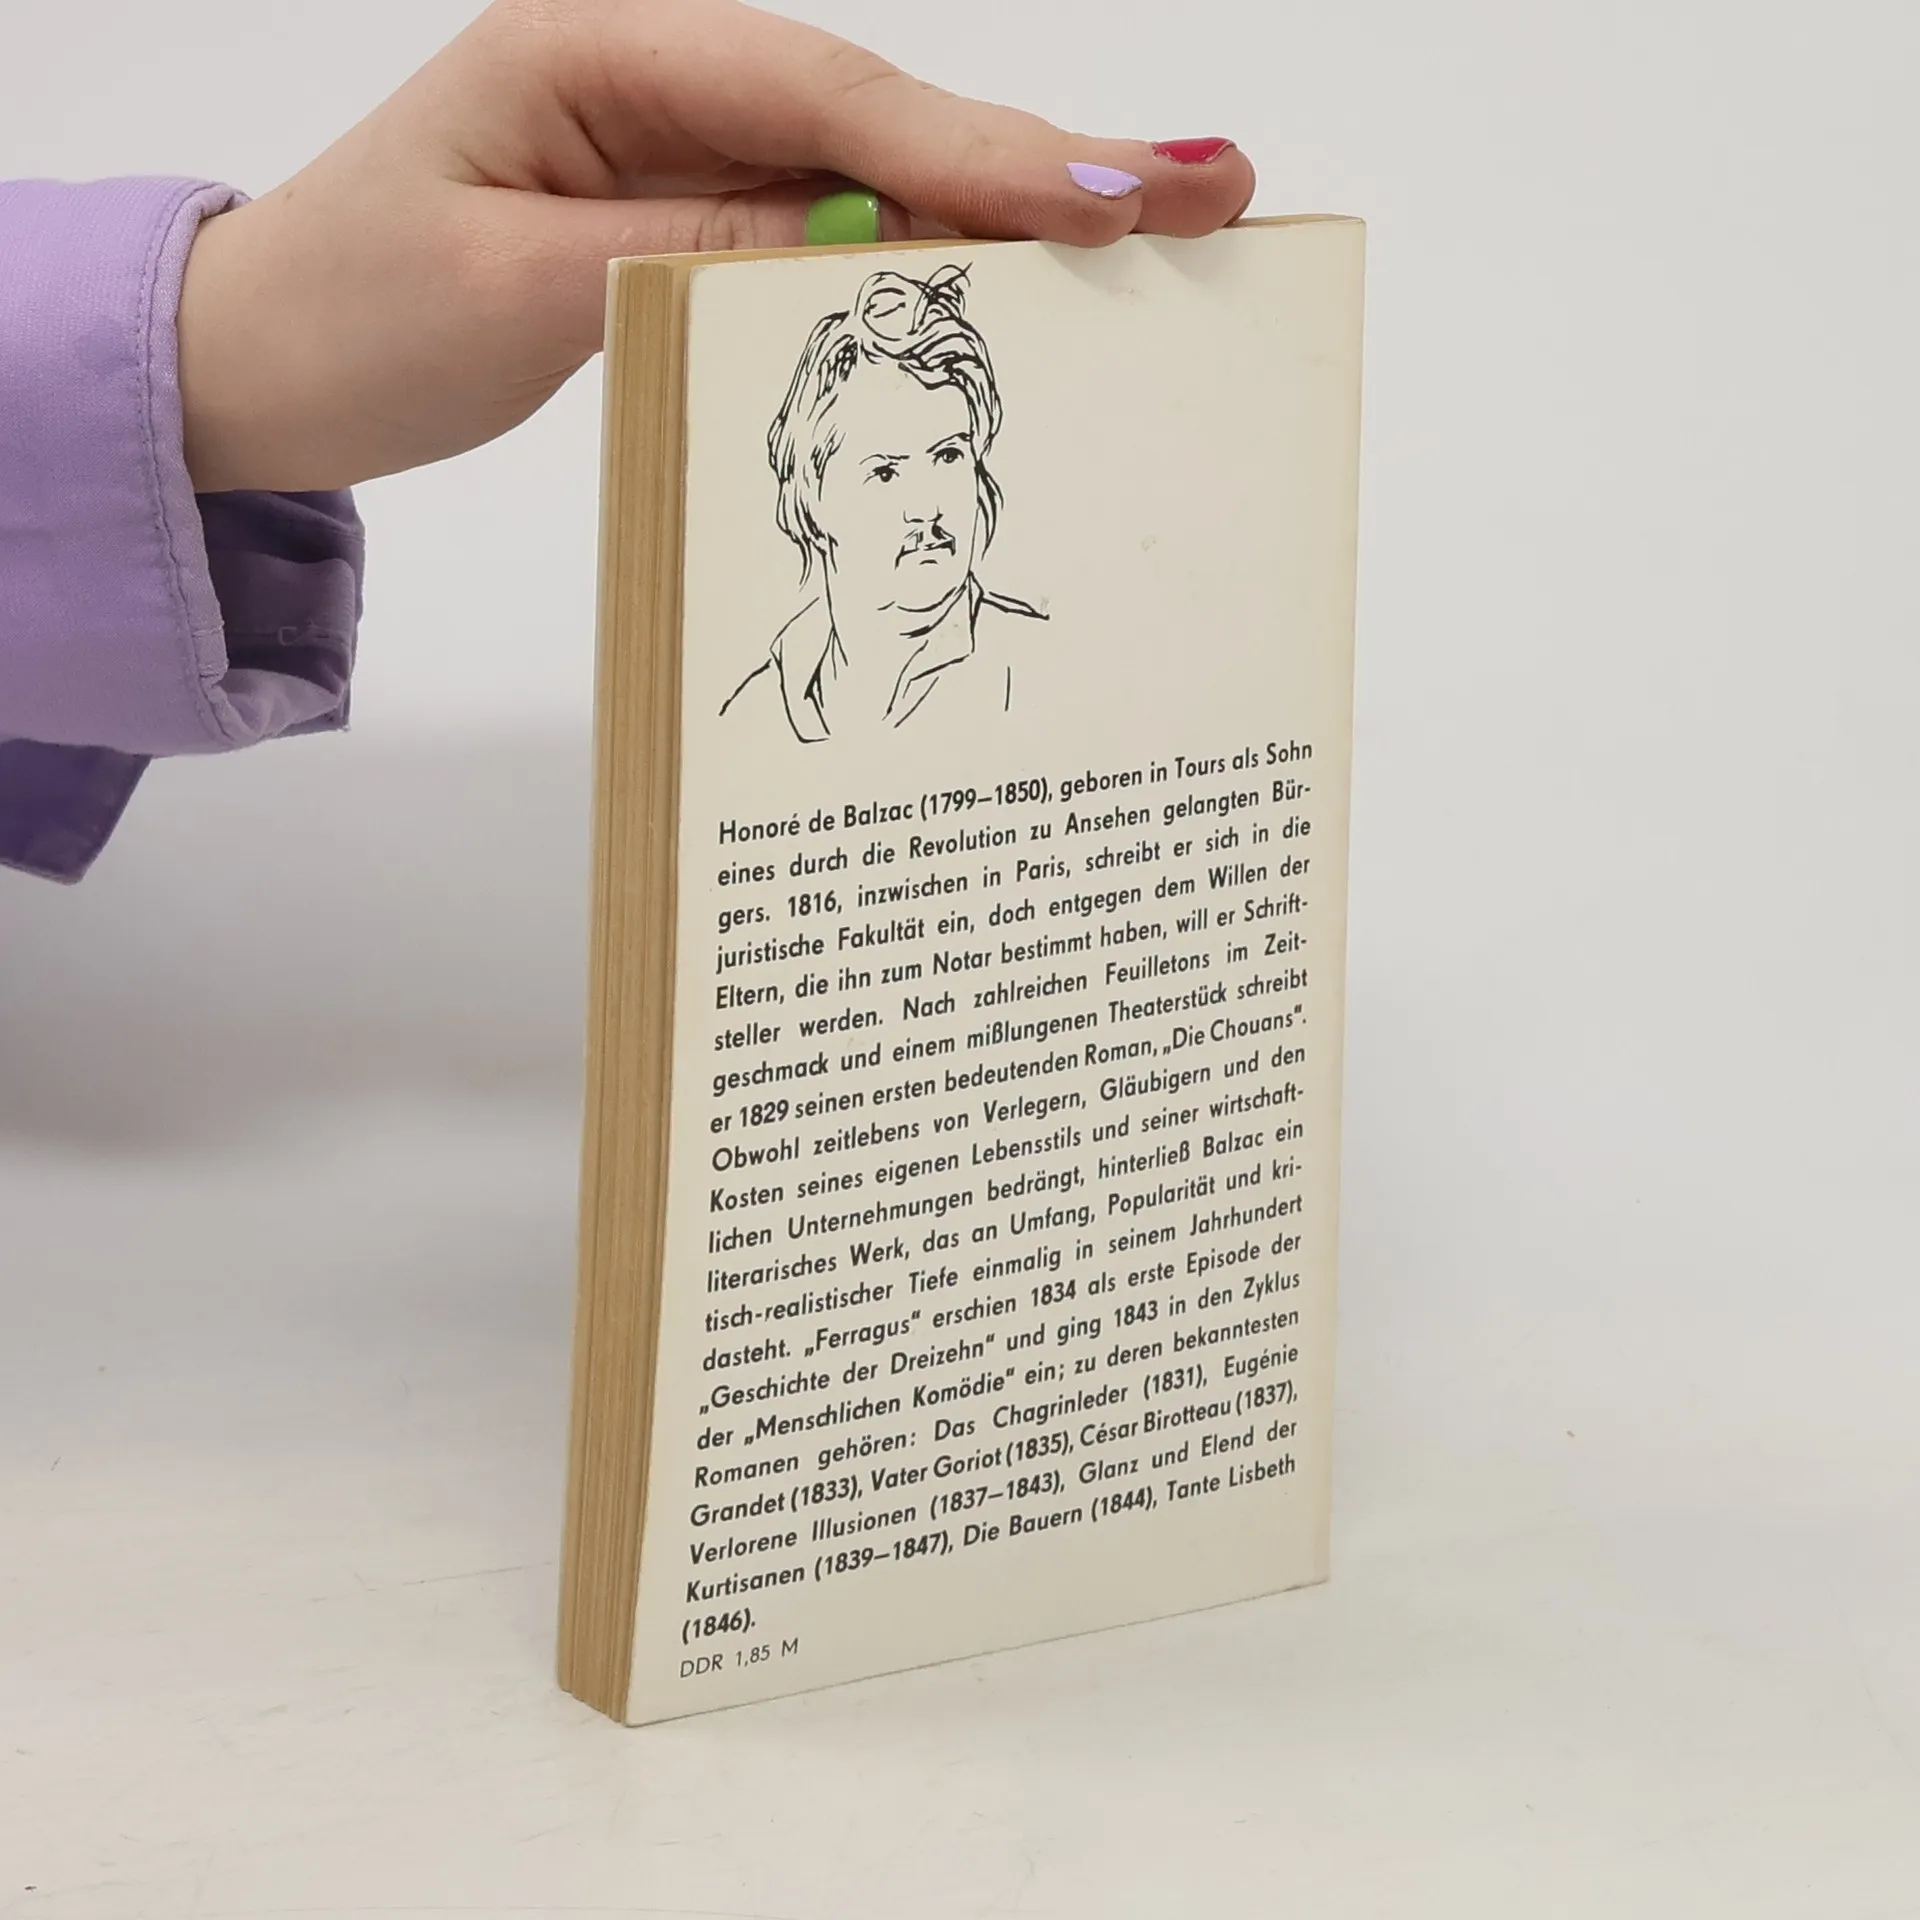 Honoré de Balzac (1799–1850), geboren in Tours als Sohn
eines durch die Revolution zu Ansehen gelangten Bür-
gers. 1816, inzwischen in Paris, schreibt er sich in die
juristische Fakultät ein, doch entgegen dem Willen der
Eltern, die ihn zum Notar bestimmt haben, will er Schrift-
steller werden. Nach zahlreichen Feuilletons im Zeit-
geschmack und einem mißlungenen Theaterstück schreibt
er 1829 seinen ersten bedeutenden Roman, „Die Chouans“.
Obwohl zeitlebens von Verlegern, Gläubigern und den
Kosten seines eigenen Lebensstils und seiner wirtschaft-
lichen Unternehmungen bedrängt, hinterließ Balzac ein
literarisches Werk, das an Umfang, Popularität und kri-
tisch-realistischer Tiefe einmalig in seinem Jahrhundert
dasteht. „Ferragus“ erschien 1834 als erste Episode der
„Geschichte der Dreizehn“ und ging 1843 in den Zyklus
der „Menschlichen Komödie“ ein; zu deren bekanntesten
Romanen gehören: Das Chagrinleder (1831), Eugénie
Grandet (1833), Vater Goriot (1835), César Birotteau (1837),
Verlorene Illusionen (1837–1843), Glanz und Elend der
Kurtisanen (1839–1847), Die Bauern (1844), Tante Lisbeth
(1846).
DDR 1,85 M